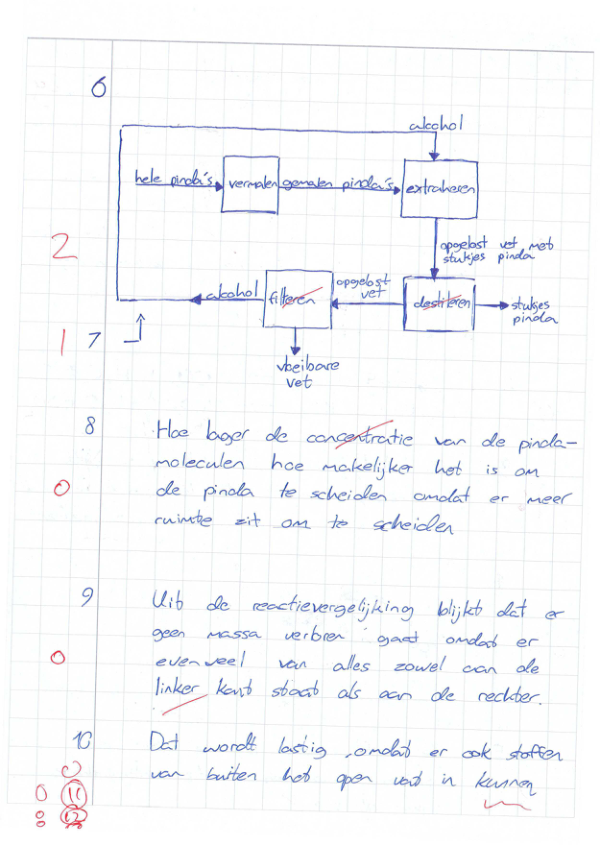 6
alcohol
hele pinda's vermalen gemalen pinda's extraheren
2
opgelost vet met
stukjes pinda
alcohol filteren opgelost
vet
destileren stukjes
pinda
1 7
vloeibare
vet
8 Hoe lager de concentratie van de pinda-
moleculen hoe makelijker het is om
0 de pinda te scheiden omdat er meer
ruimte zit om te scheiden
9 Uit de reactievergelijking blijkt dat er
geen massa verloren gaat omdat er
0 evenveel van alles zowel aan de
linker kant staat als aan de rechter.
10 Dat wordt lastig, omdat er ook stoffen
0
van buiten het open vat in kunnen
0 11
0 12